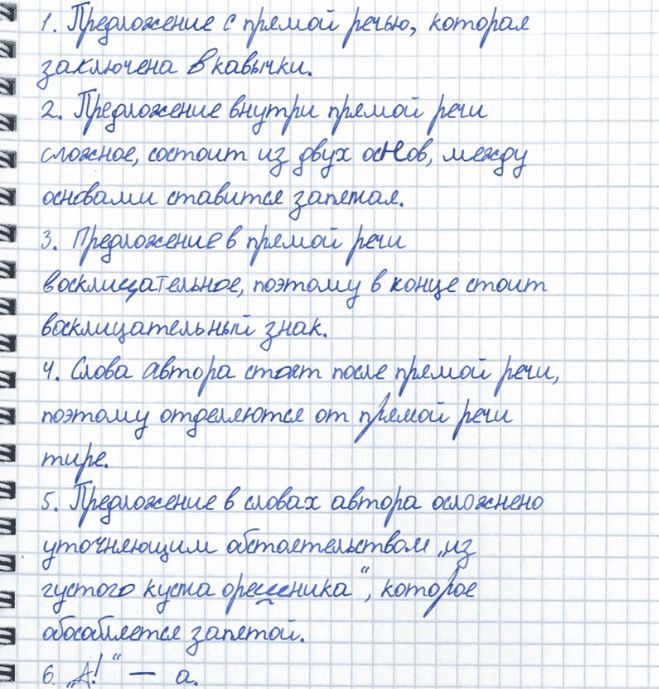 1. Предложение с прямой речью, которая
заключена в кавычки.
2. Предложение внутри прямой речи
сложное, состоит из двух основ, между
основами ставится запятая.
3. Предложение в прямой речи
восклицательное, поэтому в конце стоит
восклицательный знак.
4. Слова автора стоят после прямой речи,
поэтому отделяются от прямой речи
тире.
5. Предложение в словах автора осложнено
уточняющим обстоятельством „из
густого куста орешника“, которое
обособляется запятой.
6. „А!“ — а.